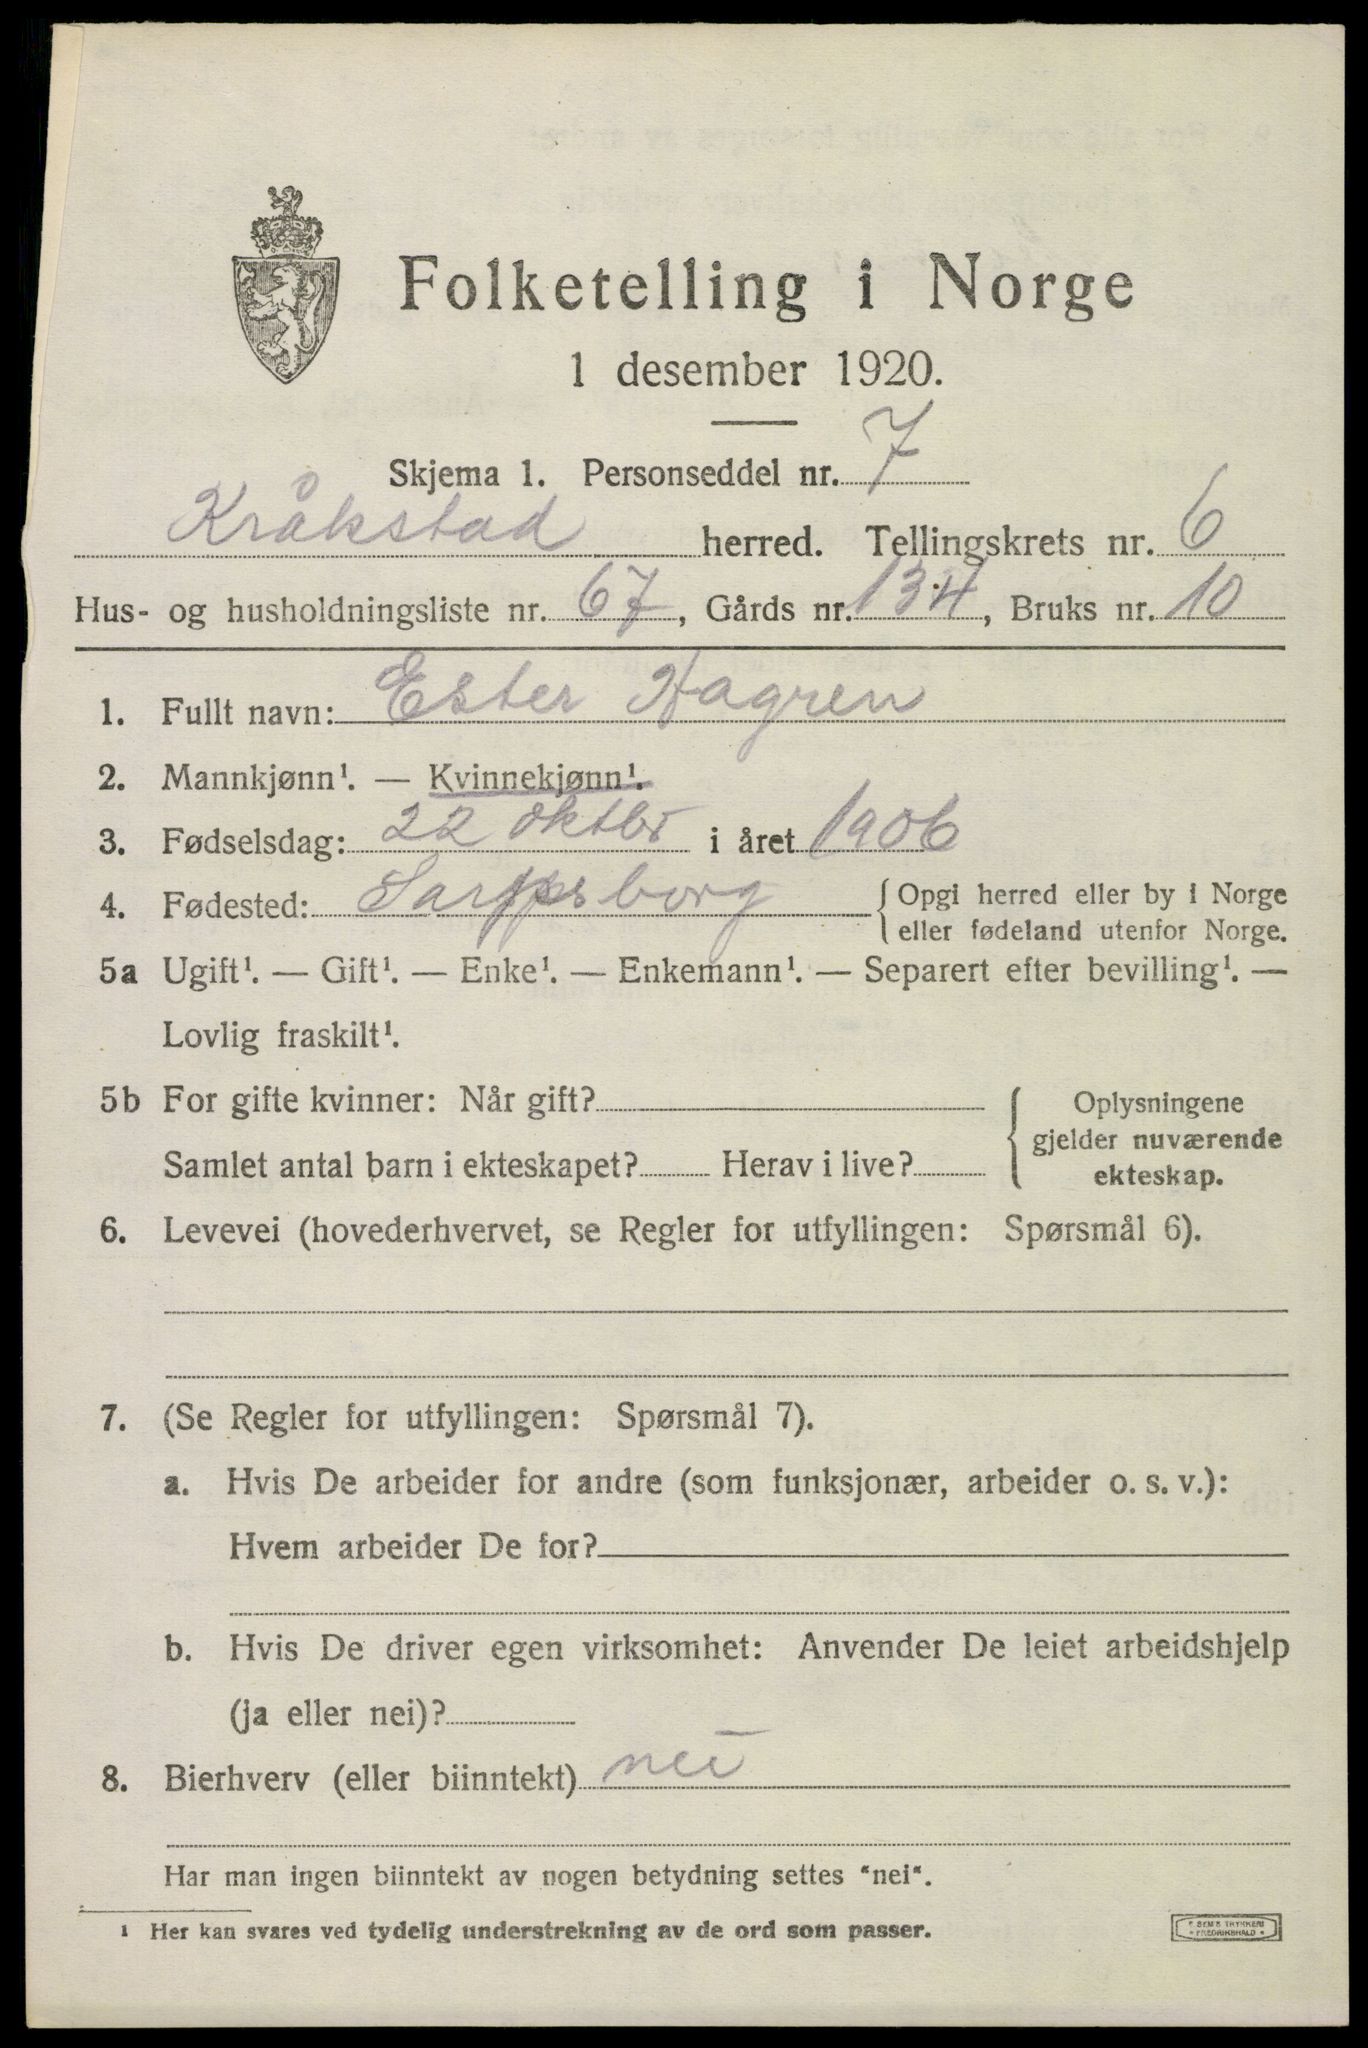 Folketelling i Norge
1 desember 1920.
Skjema 1. Personseddel nr. 7
Kråkstad herred. Tellingskrets nr. 6
Hus- og husholdningsliste nr. 67, Gårds nr. 134, Bruks nr. 10
1. Fullt navn: Ester Hagren
2. Mannkjønn¹. — Kvinnekjønn¹.
3. Fødselsdag: 22 oktbr i året 1906
4. Fødested: Sarpsborg { Opgi herred eller by i Norge
eller fødeland utenfor Norge.
5a Ugift¹. — Gift¹. — Enke¹. — Enkemann¹. — Separert efter bevilling¹. —
Lovlig fraskilt¹.
5b For gifte kvinner: Når gift? { Oplysningene
gjelder nuværende
Samlet antal barn i ekteskapet? Herav i live?
ekteskap.
6. Levevei (hovederhvervet, se Regler for utfyllingen: Spørsmål 6).
7. (Se Regler for utfyllingen: Spørsmål 7).
a. Hvis De arbeider for andre (som funksjonær, arbeider o. s. v.):
Hvem arbeider De for?
b. Hvis De driver egen virksomhet: Anvender De leiet arbeidshjelp
(ja eller nei)?
8. Bierhverv (eller biinntekt) nei
Har man ingen biinntekt av nogen betydning settes "nei".
¹ Her kan svares ved tydelig understrekning av de ord som passer.
* SEM'S TRYKKERI
* FREDRIKSHALD *